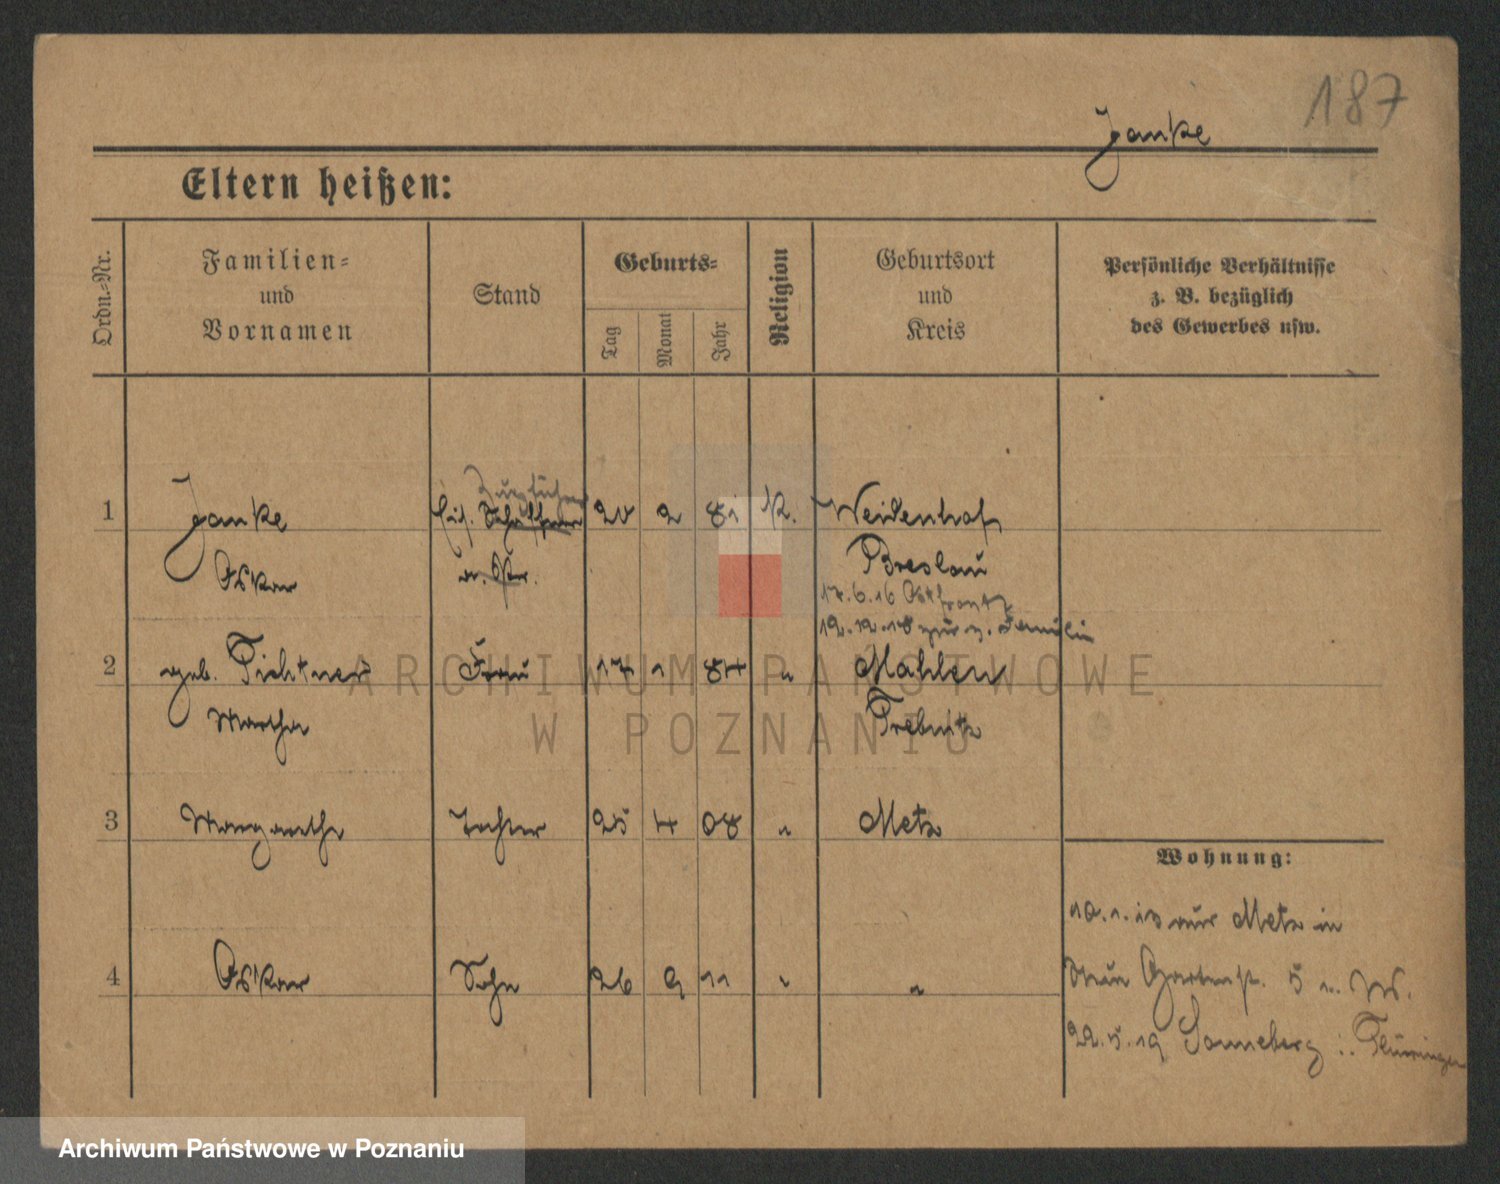 187
Janke
Eltern heißen:
Ordn.-Nr.
Familien-
und
Vornamen
Stand
Geburts-
Tag
Monat
Jahr
Religion
Geburtsort
und
Kreis
Persönliche Verhältnisse
z. B. bezüglich
des Gewerbes usw.
Zugführer
1 Janke Schaffner 2 81 K. Weidenhof
Oskar Breslau
17.6.16 Ostfront
12.12.18 zur
2 geb. Fichtner Frau 17 1 84 " Mahlen
Martha Trebnitz
3 Margarethe Tochter 25 4 08 " Metz
Wohnung:
10.1.13 aus Metz in
4 Oskar Sohn 26 9 11 " "
Gartenstr. 5
22.5.19 Sonneberg i. Thüringen
ARCHIWUM PAŃSTWOWE
W POZNANIU
Archiwum Państwowe w Poznaniu